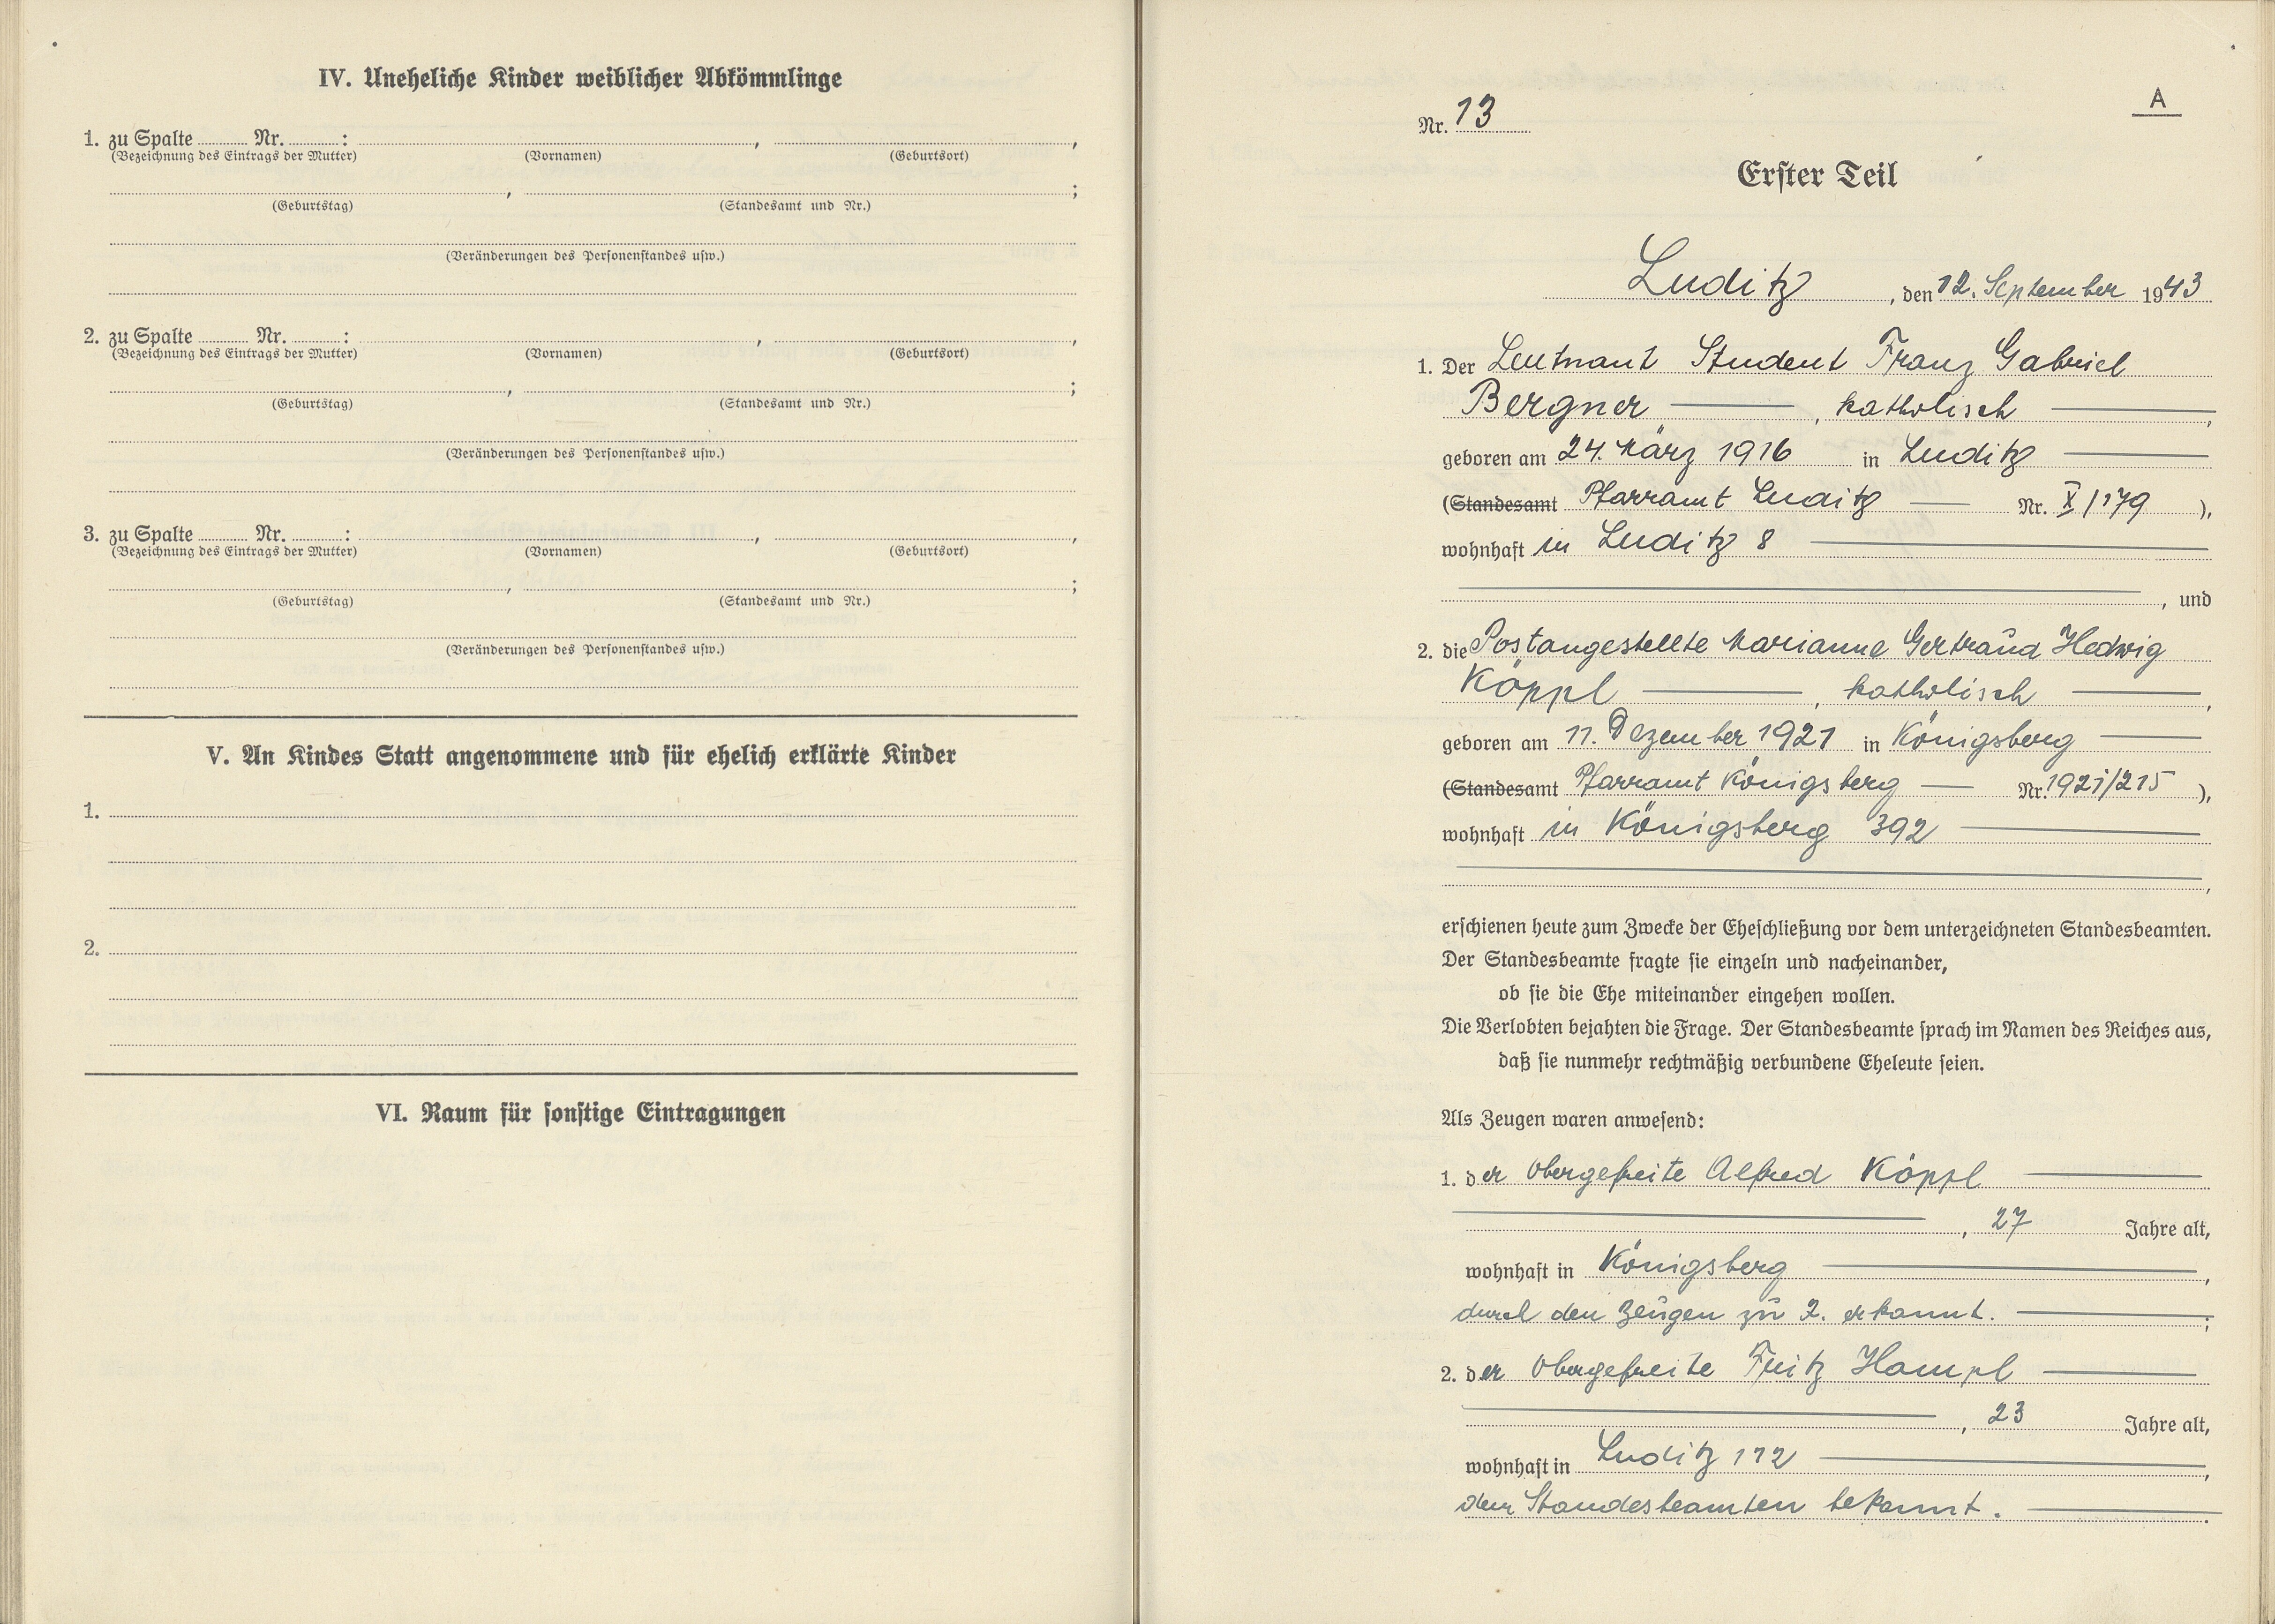 IV. Uneheliche Kinder weiblicher Abkömmlinge
1. zu Spalte ........ Nr. ........ : ........ , ........ ,
(Bezeichnung des Eintrags der Mutter) (Vornamen) (Geburtsort)
........ , ........ ;
(Geburtstag) (Standesamt und Nr.)
(Veränderungen des Personenstandes usw.)
2. zu Spalte ........ Nr. ........ : ........ , ........ ,
(Bezeichnung des Eintrags der Mutter) (Vornamen) (Geburtsort)
........ , ........ ;
(Geburtstag) (Standesamt und Nr.)
(Veränderungen des Personenstandes usw.)
3. zu Spalte ........ Nr. ........ : ........ , ........ ,
(Bezeichnung des Eintrags der Mutter) (Vornamen) (Geburtsort)
........ , ........ ;
(Geburtstag) (Standesamt und Nr.)
(Veränderungen des Personenstandes usw.)
V. An Kindes Statt angenommene und für ehelich erklärte Kinder
1.
2.
VI. Raum für sonstige Eintragungen
A
Nr. 13
Erster Teil
Luditz, den 12. September 1943
1. Der Leutnant Student Franz Gabriel
Bergner ——, katholisch ——,
geboren am 24. März 1916 in Luditz ——
(Standesamt Pfarramt Luditz —— Nr. X/179 ),
wohnhaft in Luditz 8 ——
——, und
2. die Postangestellte Marianne Gertraud Hedwig
Köppl ——, katholisch ——,
geboren am 11. Dezember 1921 in Königsberg ——
(Standesamt Pfarramt Königsberg —— Nr. 1921/215 ),
wohnhaft in Königsberg 392 ——
——,
erschienen heute zum Zwecke der Eheschließung vor dem unterzeichneten Standesbeamten.
Der Standesbeamte fragte sie einzeln und nacheinander,
ob sie die Ehe miteinander eingehen wollen.
Die Verlobten bejahten die Frage. Der Standesbeamte sprach im Namen des Reiches aus,
daß sie nunmehr rechtmäßig verbundene Eheleute seien.
Als Zeugen waren anwesend:
1. der Obergefreite Alfred Köppl ——
——, 27 Jahre alt,
wohnhaft in Königsberg ——,
durch den Zeugen zu 2. erkannt. ——;
2. der Obergefreite Fritz Hampl ——
——, 23 Jahre alt,
wohnhaft in Luditz 172 ——,
dem Standesbeamten bekannt. ——.